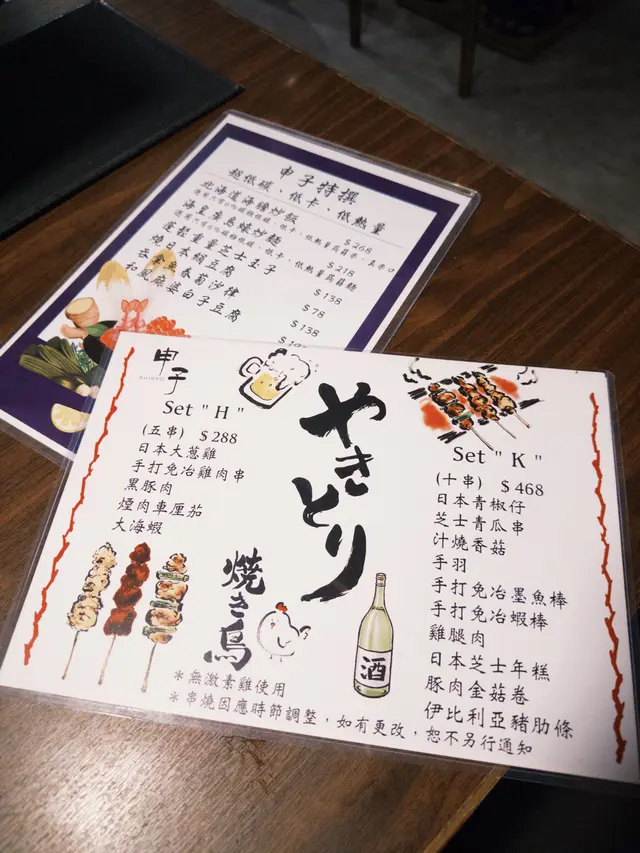 申子特撰
超低碳、低卡、低熱量
北海道海膽炒飯 $268
海皇廣島蠔炒麵 $218
蓬鬆重量芝士玉子 $138
燒日本絹豆腐 $78
吞金魚春菊沙律 $138
和風麻婆白子豆腐
申子
SHINKO
Set "H"
(五串) $288
日本大葱雞
手打免治雞肉串
黑豚肉
煙肉車厘茄
大海蝦
やきとり
焼き鳥
酒
Set "K"
(十串) $468
日本青椒仔
芝士青瓜串
汁燒香菇
手羽
手打免冶墨魚棒
手打免冶蝦棒
雞腿肉
日本芝士年糕
豚肉金菇卷
伊比利亞豬肋條
*無激素雞使用
*串燒因應時節調整，如有更改，恕不另行通知